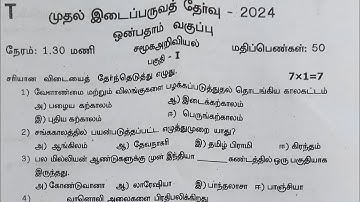 T
முதல் இடைப்பருவத் தேர்வு - 2024
ஒன்பதாம் வகுப்பு
நேரம்: 1.30 மணி சமூகஅறிவியல் மதிப்பெண்கள்: 50
பகுதி - I
சரியான விடையைத் தேர்ந்தெடுத்து எழுது. 7×1=7
1) வேளாண்மை மற்றும் விலங்குகளை பழக்கப்படுத்துதல் தொடங்கிய காலகட்டம்
அ) பழைய கற்காலம் ஆ) இடைக்கற்காலம்
இ) புதிய கற்காலம் ஈ) பெருங்கற்காலம்
2) சங்ககாலத்தில் பயன்படுத்தப்பட்ட எழுத்துமுறை யாது?
அ) ஆங்கிலம் ஆ) தேவநாகரி இ) தமிழ் பிராமி ஈ) கிரந்தம்
3) பல மில்லியன் ஆண்டுகளுக்கு முன் இந்தியா ______ கண்டத்தில் ஒரு பகுதியாக
இருந்தது.
அ) கோண்டுவானா ஆ) லாரேஷியா இ) பாந்தலாசா ஈ) பாஞ்சியா
4) ______ வானொலி அலைகளை பிரதிபலிக்கிறது